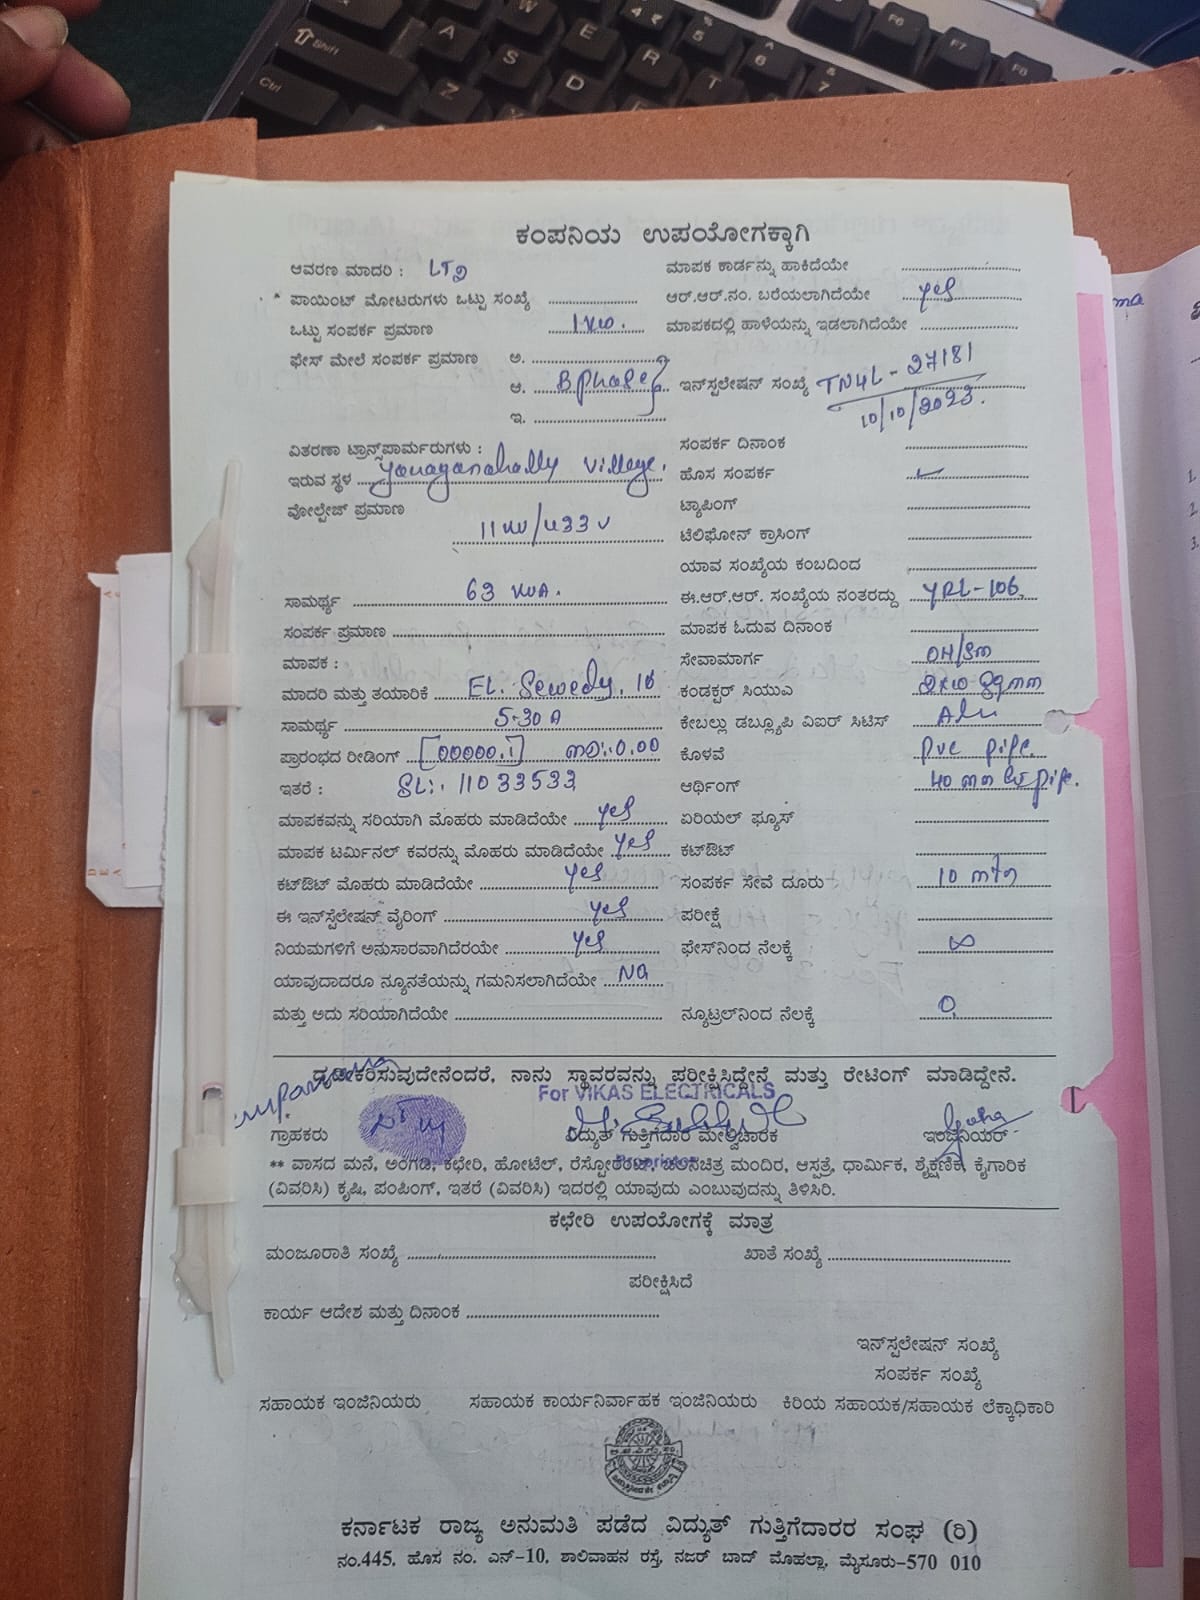 ಕಂಪನಿಯ ಉಪಯೋಗಕ್ಕಾಗಿ
ಆವರಣ ಮಾದರಿ : LT2
ಮಾಪಕ ಕಾರ್ಡನ್ನು ಹಾಕಿದೆಯೇ
ಪಾಯಿಂಟ್ ಮೋಟರುಗಳು ಒಟ್ಟು ಸಂಖ್ಯೆ
ಆರ್.ಆರ್.ನಂ. ಬರೆಯಲಾಗಿದೆಯೇ yes
ಒಟ್ಟು ಸಂಪರ್ಕ ಪ್ರಮಾಣ 1KW.
ಮಾಪಕದಲ್ಲಿ ಹಾಳೆಯನ್ನು ಇಡಲಾಗಿದೆಯೇ
ಫೇಸ್ ಮೇಲೆ ಸಂಪರ್ಕ ಪ್ರಮಾಣ ಅ.
ಆ. B phase
ಇನ್ಸ್ಟಲೇಷನ್ ಸಂಖ್ಯೆ TN4L - 27181
10/10/2023.
ಇ.
ವಿತರಣಾ ಟ್ರಾನ್ಸ್‌ಪಾರ್ಮರುಗಳು :
ಸಂಪರ್ಕ ದಿನಾಂಕ
ಇರುವ ಸ್ಥಳ Yanaganahally village.
ಹೊಸ ಸಂಪರ್ಕ ✓
ವೋಲ್ಟೇಜ್ ಪ್ರಮಾಣ
ಟ್ಯಾಪಿಂಗ್
11 KV/433 V
ಟೆಲಿಫೋನ್ ಕ್ರಾಸಿಂಗ್
ಯಾವ ಸಂಖ್ಯೆಯ ಕಂಬದಿಂದ
ಸಾಮರ್ಥ್ಯ 63 KVA.
ಈ.ಆರ್.ಆರ್. ಸಂಖ್ಯೆಯ ನಂತರದ್ದು YRL-106
ಸಂಪರ್ಕ ಪ್ರಮಾಣ
ಮಾಪಕ ಓದುವ ದಿನಾಂಕ
ಮಾಪಕ :
ಸೇವಾಮಾರ್ಗ OH/SM
ಮಾದರಿ ಮತ್ತು ತಯಾರಿಕೆ EL. Sewedy. 1Φ
ಕಂಡಕ್ಟರ್ ಸಿಯುಎ
ಸಾಮರ್ಥ್ಯ 5-30 A
ಕೇಬಲ್ಲು ಡಬ್ಲ್ಯೂಪಿ ವಿಐರ್ ಸಿಟಿಸ್ Alu
ಪ್ರಾರಂಭದ ರೀಡಿಂಗ್ [00000.1] MD:.0.00
ಕೊಳವೆ pvc pipe.
ಇತರೆ : SL:. 11033533
ಆರ್ಥಿಂಗ್ 40 mm pipe.
ಮಾಪಕವನ್ನು ಸರಿಯಾಗಿ ಮೊಹರು ಮಾಡಿದೆಯೇ yes
ಏರಿಯಲ್ ಫ್ಯೂಸ್
ಮಾಪಕ ಟರ್ಮಿನಲ್ ಕವರನ್ನು ಮೊಹರು ಮಾಡಿದೆಯೇ yes
ಕಟ್‌ಔಟ್
ಕಟ್‌ಔಟ್ ಮೊಹರು ಮಾಡಿದೆಯೇ yes
ಸಂಪರ್ಕ ಸೇವೆ ದೂರು 10 mtr
ಈ ಇನ್‌ಸ್ಟೆಲೇಷನ್ ವೈರಿಂಗ್ yes
ಪರೀಕ್ಷೆ
ನಿಯಮಗಳಿಗೆ ಅನುಸಾರವಾಗಿದೆರಯೇ yes
ಫೇಸ್‌ನಿಂದ ನೆಲಕ್ಕೆ ∞
ಯಾವುದಾದರೂ ನ್ಯೂನತೆಯನ್ನು ಗಮನಿಸಲಾಗಿದೆಯೇ NO
ಮತ್ತು ಅದು ಸರಿಯಾಗಿದೆಯೇ
ನ್ಯೂಟ್ರಲ್‌ನಿಂದ ನೆಲಕ್ಕೆ 0
ದೃಢೀಕರಿಸುವುದೇನೆಂದರೆ, ನಾನು ಸ್ಥಾವರವನ್ನು ಪರೀಕ್ಷಿಸಿದ್ದೇನೆ ಮತ್ತು ರೇಟಿಂಗ್ ಮಾಡಿದ್ದೇನೆ.
For VIKAS ELECTRICALS
ಗ್ರಾಹಕರು
ವಿದ್ಯುತ್ ಗುತ್ತಿಗೆದಾರ ಮೇಲ್ವಿಚಾರಕ
ಇಂಜಿನಿಯರ್
Proprietor
** ವಾಸದ ಮನೆ, ಅಂಗಡಿ, ಕಛೇರಿ, ಹೋಟೆಲ್, ರೆಸ್ಟೋರೆಂಟ್, ಚಲನಚಿತ್ರ ಮಂದಿರ, ಆಸ್ಪತ್ರೆ, ಧಾರ್ಮಿಕ, ಶೈಕ್ಷಣಿಕ, ಕೈಗಾರಿಕ
(ವಿವರಿಸಿ) ಕೃಷಿ, ಪಂಪಿಂಗ್, ಇತರೆ (ವಿವರಿಸಿ) ಇದರಲ್ಲಿ ಯಾವುದು ಎಂಬುವುದನ್ನು ತಿಳಿಸಿರಿ.
ಕಛೇರಿ ಉಪಯೋಗಕ್ಕೆ ಮಾತ್ರ
ಮಂಜೂರಾತಿ ಸಂಖ್ಯೆ
ಖಾತೆ ಸಂಖ್ಯೆ
ಪರೀಕ್ಷಿಸಿದೆ
ಕಾರ್ಯ ಆದೇಶ ಮತ್ತು ದಿನಾಂಕ
ಇನ್‌ಸ್ಟಲೇಷನ್ ಸಂಖ್ಯೆ
ಸಂಪರ್ಕ ಸಂಖ್ಯೆ
ಸಹಾಯಕ ಇಂಜಿನಿಯರು ಸಹಾಯಕ ಕಾರ್ಯನಿರ್ವಾಹಕ ಇಂಜಿನಿಯರು ಕಿರಿಯ ಸಹಾಯಕ/ಸಹಾಯಕ ಲೆಕ್ಕಾಧಿಕಾರಿ
ಕರ್ನಾಟಕ ರಾಜ್ಯ ಅನುಮತಿ ಪಡೆದ ವಿದ್ಯುತ್ ಗುತ್ತಿಗೆದಾರರ ಸಂಘ (ರಿ)
ನಂ.445, ಹೊಸ ನಂ. ಎನ್-10, ಶಾಲಿವಾಹನ ರಸ್ತೆ, ನಜರ್ ಬಾದ್ ಮೊಹಲ್ಲಾ, ಮೈಸೂರು-570 010